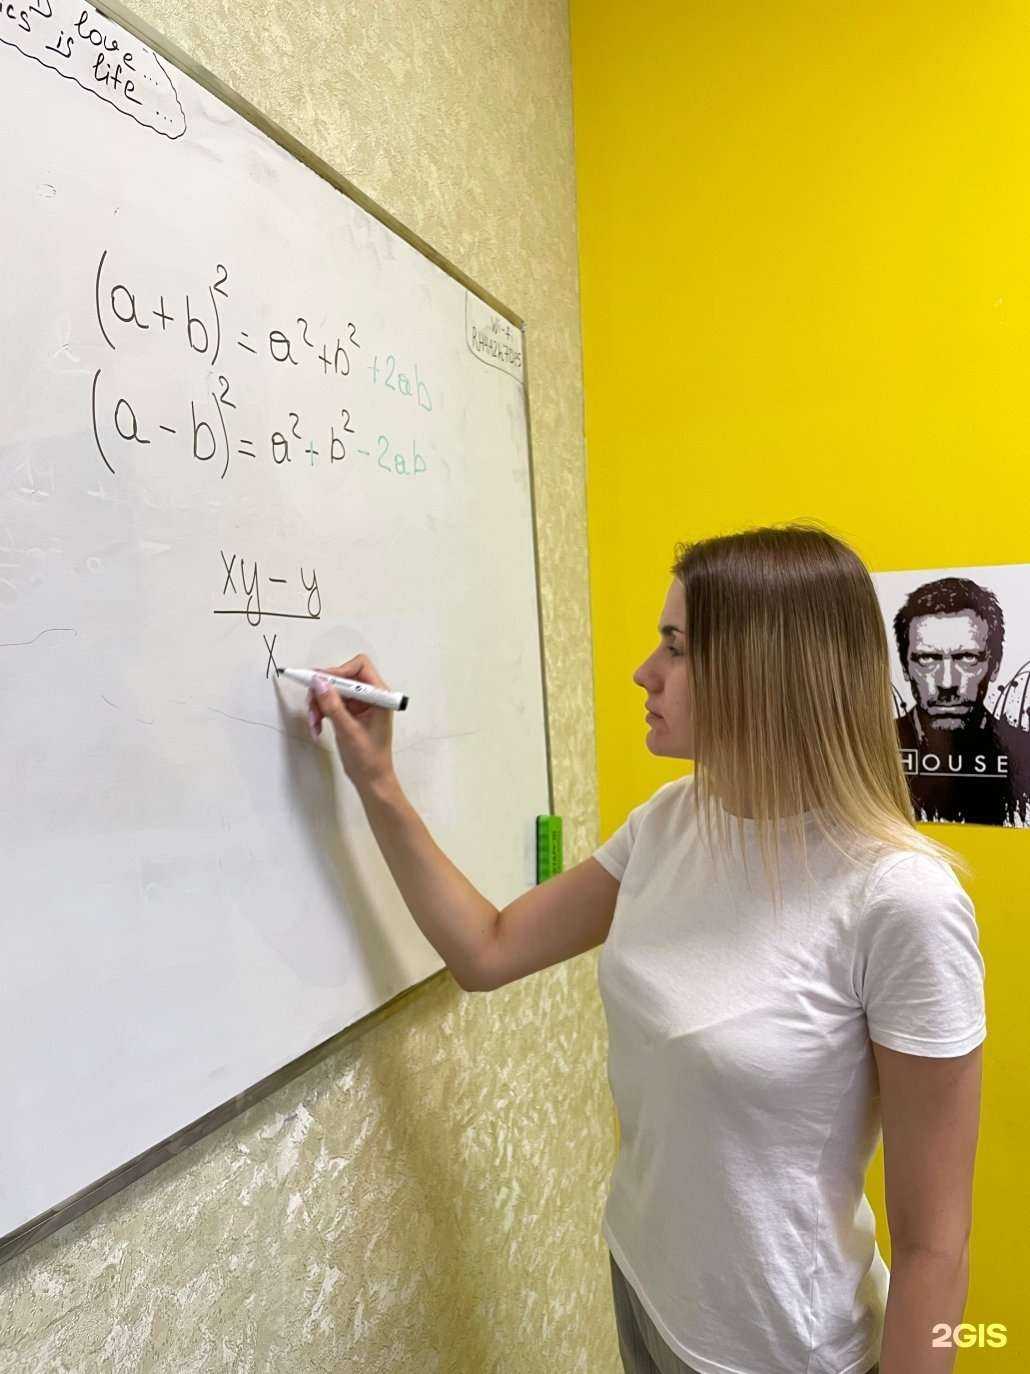 love...
is life...
(a+b)² = a² + b² + 2ab
(a - b)² = a² + b² - 2ab
xy - y
x
HOUSE
2GIS